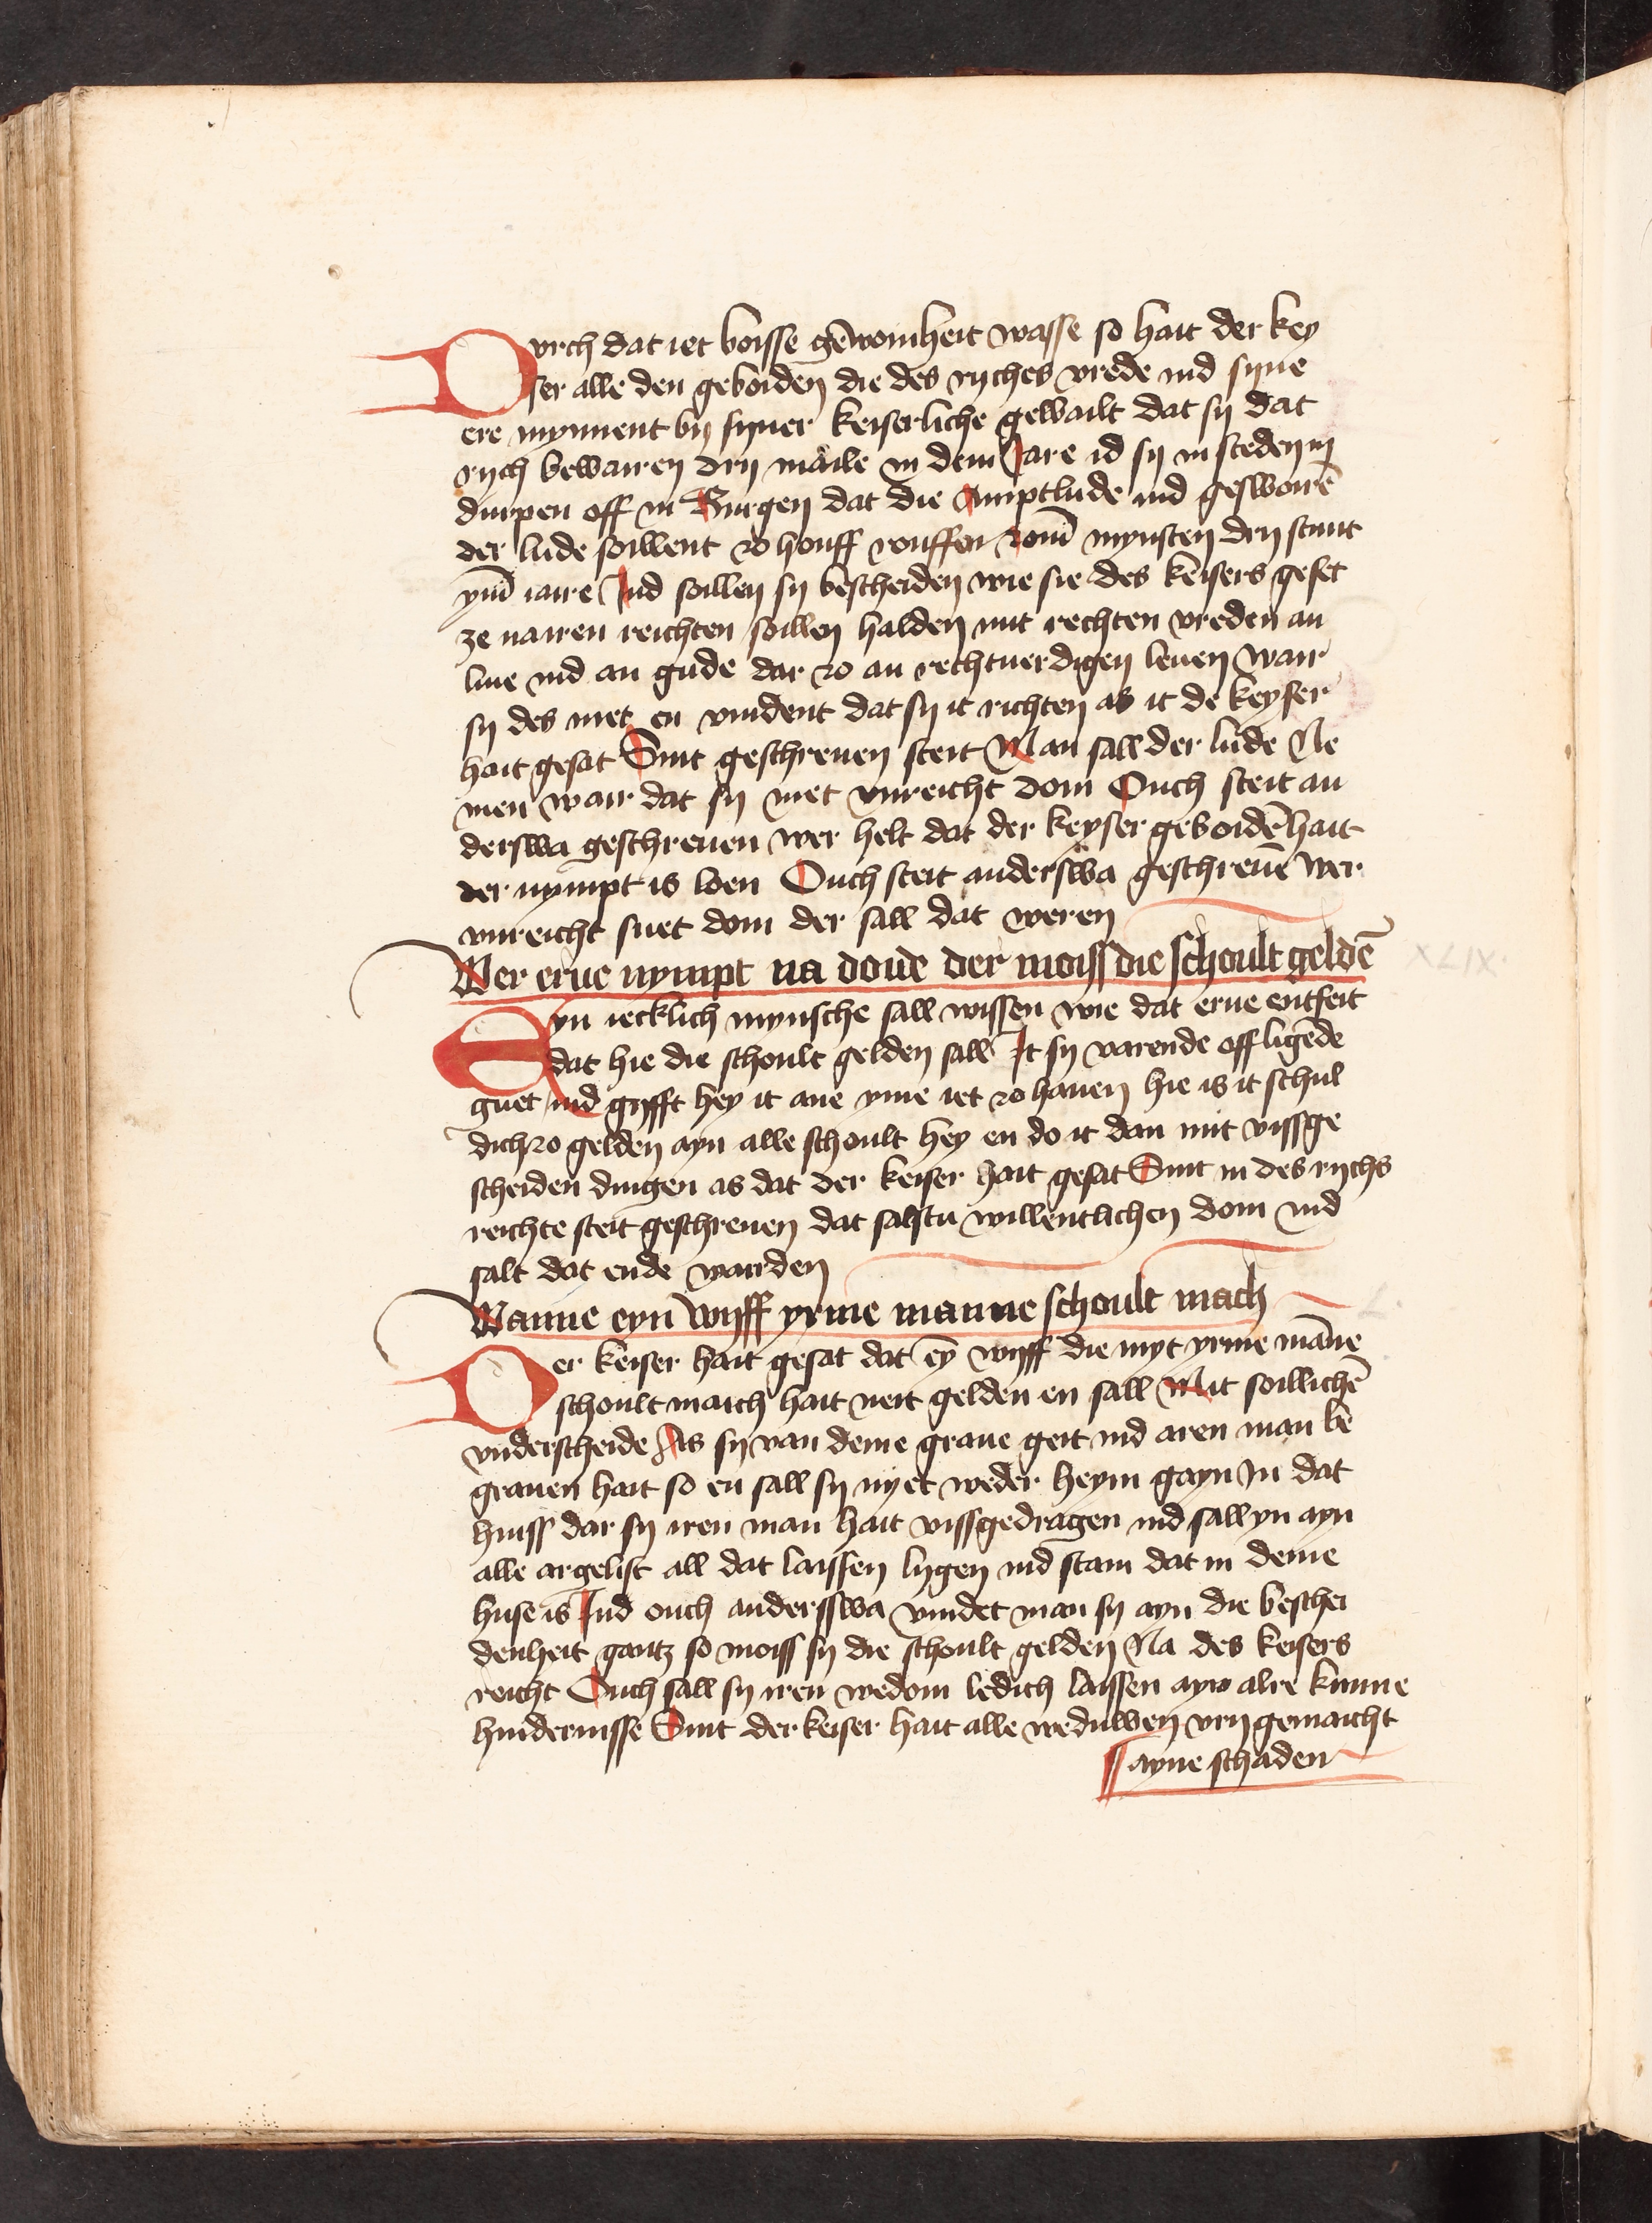 Durch dat iet boisse gēwoinheit wasse so hait der key
ser alle den geboiden die des ryches vrede ind syne
ere mynnent by syner keiserliche gewailt dat sy dat
rych bewairen dry maile in dem Jare id sy in steden in
durpen off in Burgen dat die Amptlude ind geswoirē
der lude soillent zo houff rouffen zom̄ mynsten dry stunt
ym̄ iaire Ind soillen sy bescheiden wie sie des keisers geset
ze nairen reichten soillen halden mit rechten vreden an
liue ind an gude dar zo an rechtuerdigen leuen wair
sy des niet en vindent dat sy it richten as it de keyser
hait gesat Sint geschreuen steit Man sall der lude Ne
men wair dat sy niet vnreicht doin Ouch steit an
derswa geschreuen wer helt dat der keyser geboidē hait
der nympt is loen Ouch steit anderswa geschreuē wer
vnreicht suet doin der sall dat weren
Wer erue nympt na doue der moiss die schoult geldē
XLIX.
Eyn iecklich mynsche sall wissen wie dat erue entfeit
dat hie die schoult gelden sall It sy varende off ligēde
guet ind gyfft hey it ane yme iet zo hauen hie is it schul
dich zo gelden ayn alle schoult hey en do it dan mit vissge
scheiden dingen as dat der keiser hait gesat Sint in des rychs
reichte steit geschreuen dat salstu willentlichen doin ind
salt dat ende warden
Wanne eyn wyff yrme manne schoult mach
L.
Der keiser hait gesat dat eȳ wyff die myt yrme māne
schoult maich hait neit gelden en sall Mit soillichē
vnderscheide As sy van deme graue geit ind aren man be
grauen hait so en sall sy nyet weder heym gayn In dat
huiss dar sy iren man hait vissgedragen ind sall yn ayn
alle argelist all dat laissen lygen ind stain dat in deme
huse is Ind ouch andersswa vindet man sy ayn die beschei
denheit gantz so moiss sy die schoult gelden Na des keisers
reicht Ouch sall sy iren wedom ledich laissen ayn alre kunne
hindernisse Sint der keiser hait alle weduwen vry gemaicht
ayne schaden